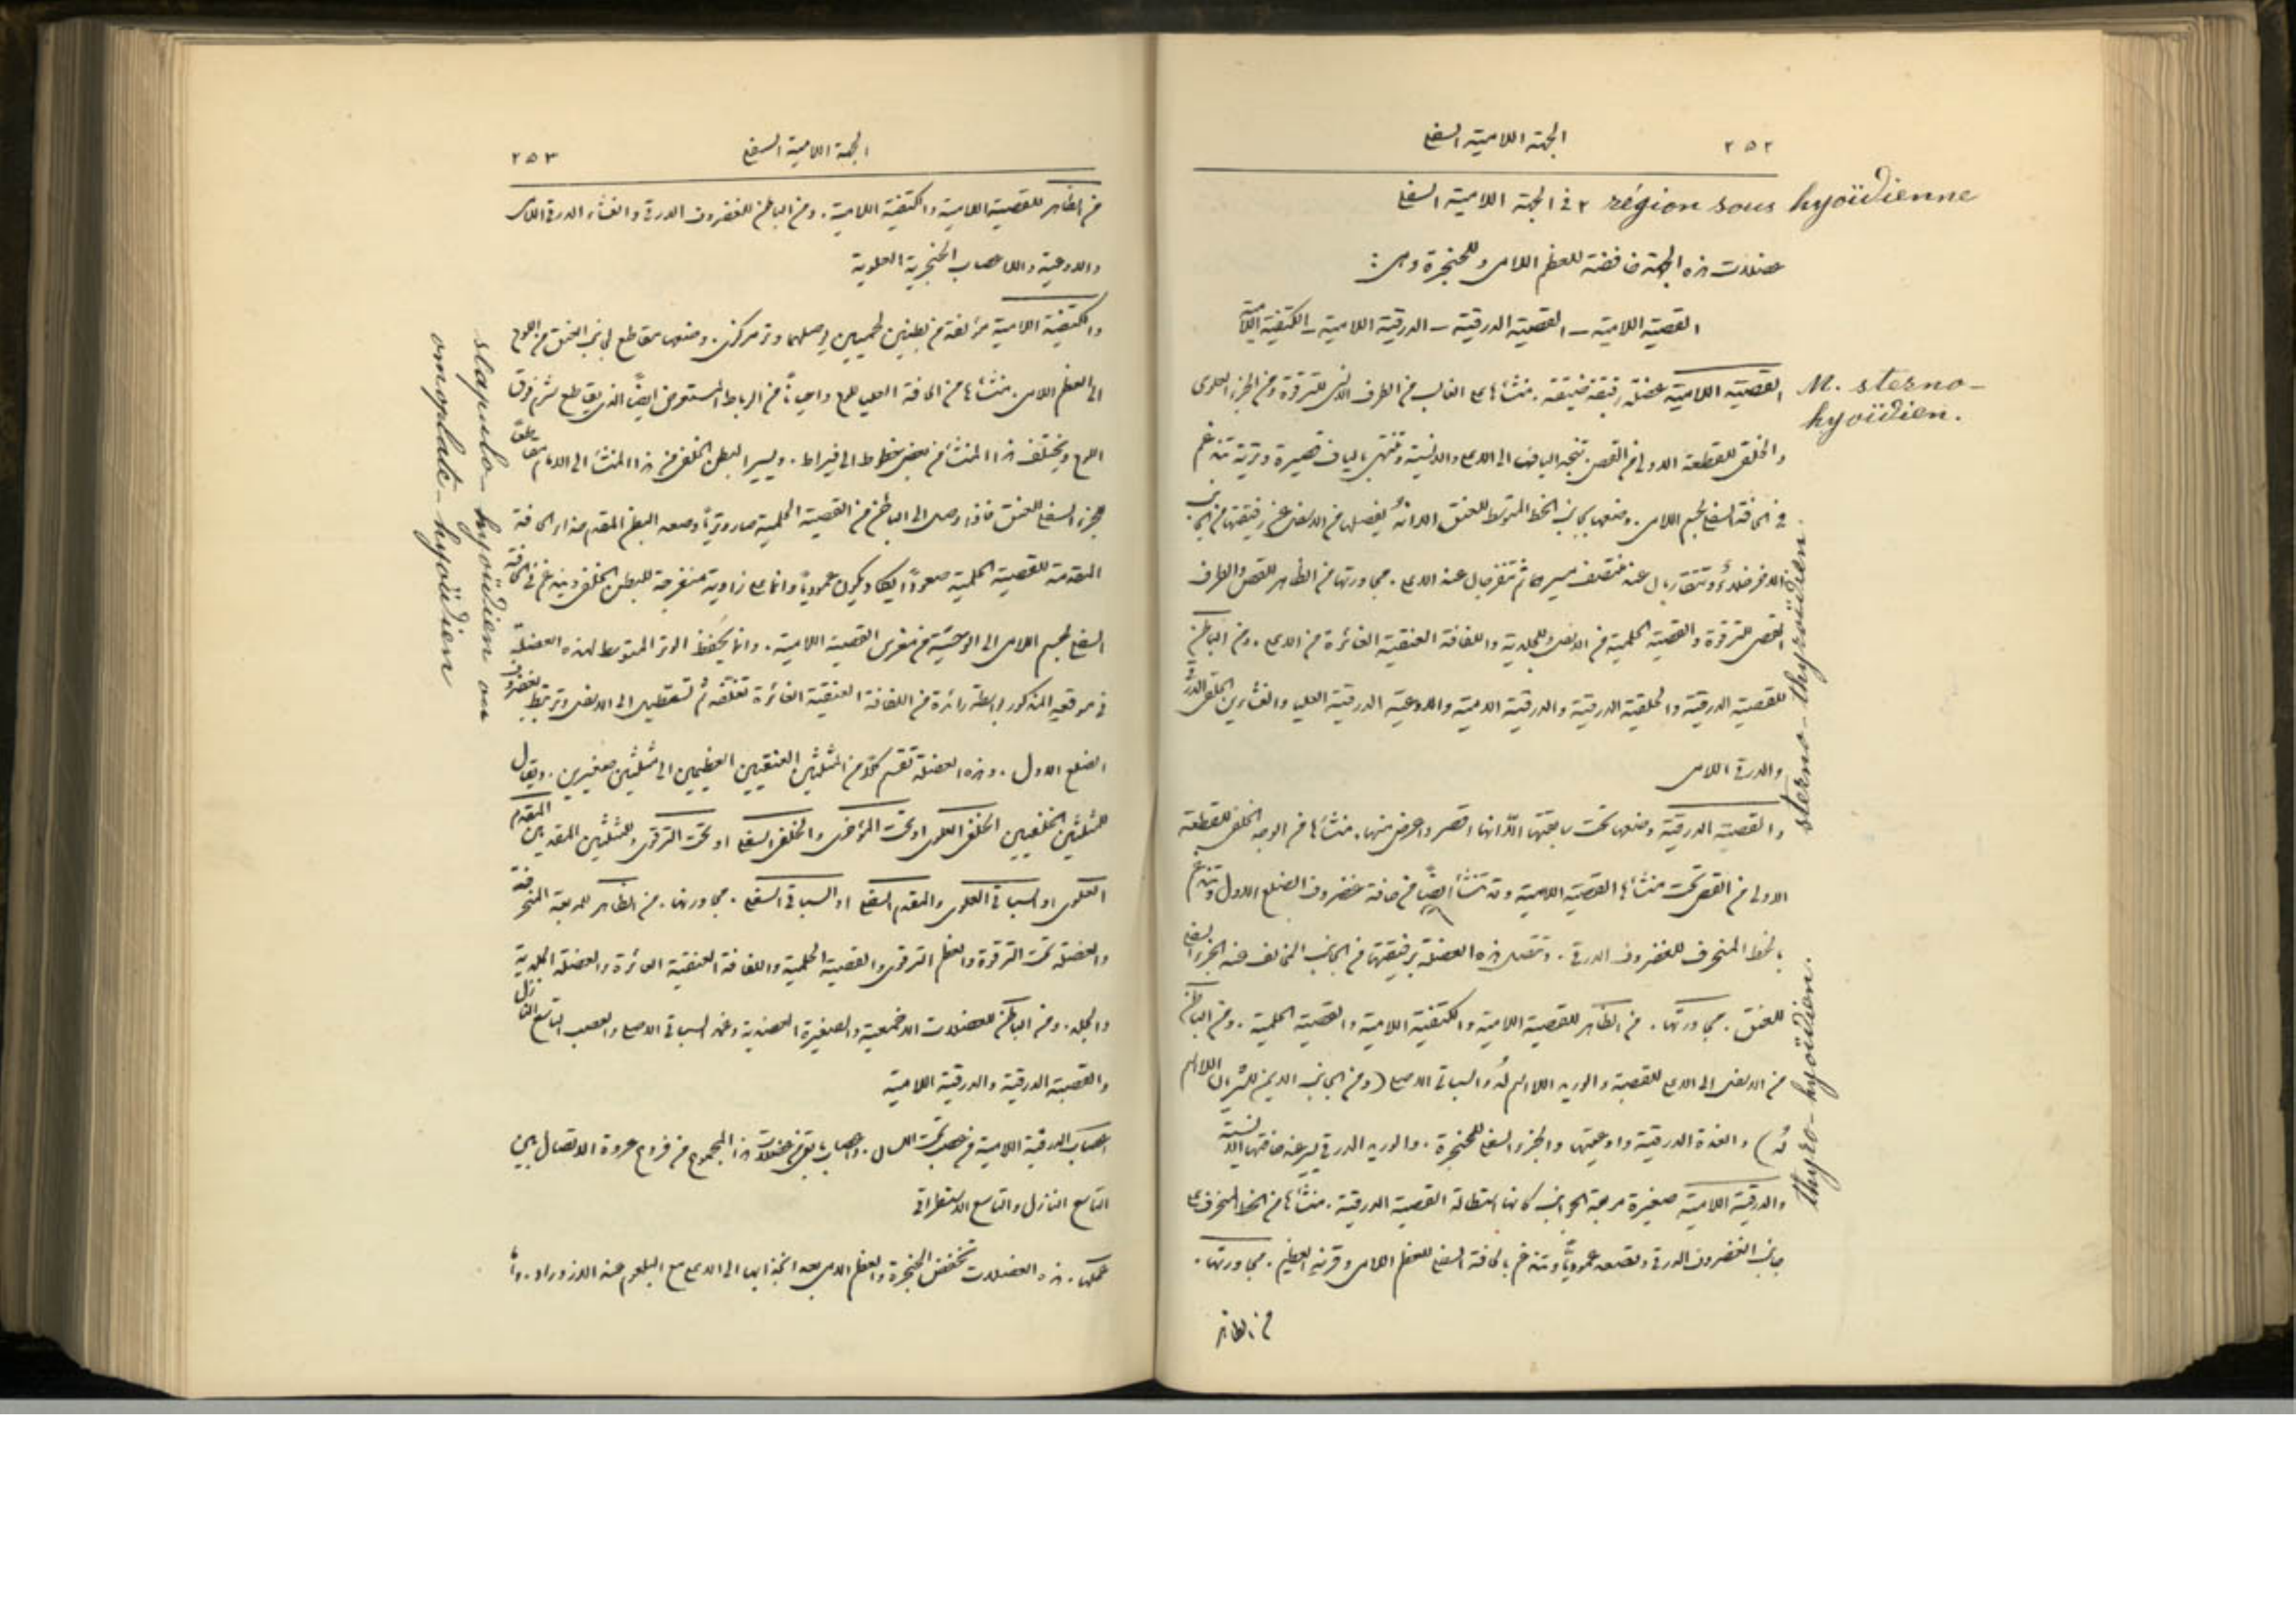 ٢٥٢
الجهة اللامية السفلى
٢ في الجهة اللامية السفلى région sous hyoïdienne
عضلات هذه الجهة خافضة للعظم اللامي وللحنجرة وهي:
القصية اللامية – القصية الدرقية – الدرقية اللامية – الكتفية اللامية
القصية اللامية عضلة رقيقة ضيقة. منشأها على الغالب من الطرف الانسي للترقوة ومن الجزء العلوي
M. sterno-
hyoïdien.
والخلفي للقطعة الاولى من القص. تتجه اليافها الى الاعلى والانسية وتنتهي بالياف قصيرة وترية تندغم
في الحافة السفلى لجسم اللامي. وضعها بجانب الخط المتوسط للعنق الا انه يفصلها من الاسفل عن رفيقتها من الجانب
الآخر خلاء وتتقاربان عند منتصف مسيرهما ثم تنفرجان عند الاعلى. مجاورتها من الظاهر للقص والطرف
القصي للترقوة والقصية الحلمية من الاسفل وللجلدية واللفافة العنقية الغائرة من الاعلى. ومن الباطن
للقصية الدرقية والحلقية الدرقية والدرقية اللامية والاوعية الدرقية العليا والغشائين الحلقي الدرقي
والدرقي اللامي
sterno-thyroïdien.
والقصية الدرقية وضعها تحت سابقتها الا انها اقصر واعرض منها. منشأها من الوجه الخلفي للقطعة
الاولى من القص تحت منشأ القصية اللامية وقد تنشأ ايضاً من حافة غضروف الضلع الاول وتندغم
بالخط المنحرف للغضروف الدرقي. وتتصل هذه العضلة برفيقتها من الجانب المخالف عند الجزء السفلي
للعنق. مجاورتها. من الظاهر للقصية اللامية والكتفية اللامية والقصية الحلمية. ومن الباطن
من الاسفل الى الاعلى للقصبة والوريد اللا اسم له والسباتي الاصلي (ومن الجانب الايمن للشريان اللا اسم
له) والغدة الدرقية واوعيتها والجزء السفلي للحنجرة. والوريد الدرقي يسير عند حافتها الانسية
thyro-hyoïdien.
والدرقية اللامية صغيرة مربعة الجوانب كانها استطالة القصية الدرقية. منشأها من الخط المنحرف على
جانب الغضروف الدرقي وتصعد عمودياً وتندغم بالحافة السفلى للعظم اللامي وقرنه العظيم. مجاورتها.
من الظاهر
الجهة اللامية السفلى
٢٥٣
من الظاهر للقصية اللامية والكتفية اللامية. ومن الباطن للغضروف الدرقي والغشاء الدرقي اللامي
والاوعية والاعصاب الحنجرية العلوية
والكتفية اللامية مؤلفة من بطنين لحميين يوصلهما وتر مركزي. وضعها مقاطع لجانب العنق من اللوح
الى العظم اللامي. منشأها من الحافة العليا للوح واحياناً من الرباط المستعرض ايضاً الذي يقاطع شرم فوق
اللوح ويختلف هذا المنشأ من بعض خطوط الى قيراط. ويسير البطن الخلفي من هذا المنشأ الى الامام مقاطعة
للجزء السفلي للعنق فاذا وصل الى الباطن من القصية الحلمية صار وترياً وصعد البطن المقدم حذاء الحافة
المقدمة للقصية الحلمية صعوداً يكاد يكون عمودياً وانما على زاوية منفرجة للبطن الخلفي ويندغم في الحافة
السفلى لجسم اللامي الى الوحشية من مغرس القصية اللامية. وانما يحفظ الوتر المتوسط لهذه العضلة
في موقعه المذكور بواسطة زائدة من اللفافة العنقية الغائرة تغلفه ثم تستطيل الى الاسفل وترتبط بغضروف
الضلع الاول. وهذه العضلة تقسم كلاً من المثلثين العنقيين العظيمين الى مثلثين صغيرين. ويقال
للمثلثين الخلفيين الخلفي العلوي او تحت المؤخري والخلفي السفلي او تحت الترقوي وللمثلثين المقدمين المقدم
العلوي او السباتي العلوي والمقدم السفلي او السباتي السفلي. مجاورتها. من الظاهر للمربعة المنحرفة
والعضلة تحت الترقوة والعظم الترقوي والقصية الحلمية واللفافة العنقية الغائرة والعضلة الجلدية
والجلد. ومن الباطن للعضلات الاخمعية والصغيرة العضدية وغمد السباتي الاصلي والعصب التاسع النازل
والقصبة الدرقية والدرقية اللامية
اعصاب الدرقية اللامية من عصب تحت اللسان. واعصاب باقي عضلات هذا المجموع من فروع عروة الاتصال بين
التاسع النازل والتاسع الاستطراقي
عملها. هذه العضلات تخفض الحنجرة والعظم اللامي بعد انجذابهما الى الاعلى مع البلعوم عند الازدراد. واما
scapulo-hyoïdien ou
omoplate-hyoïdien